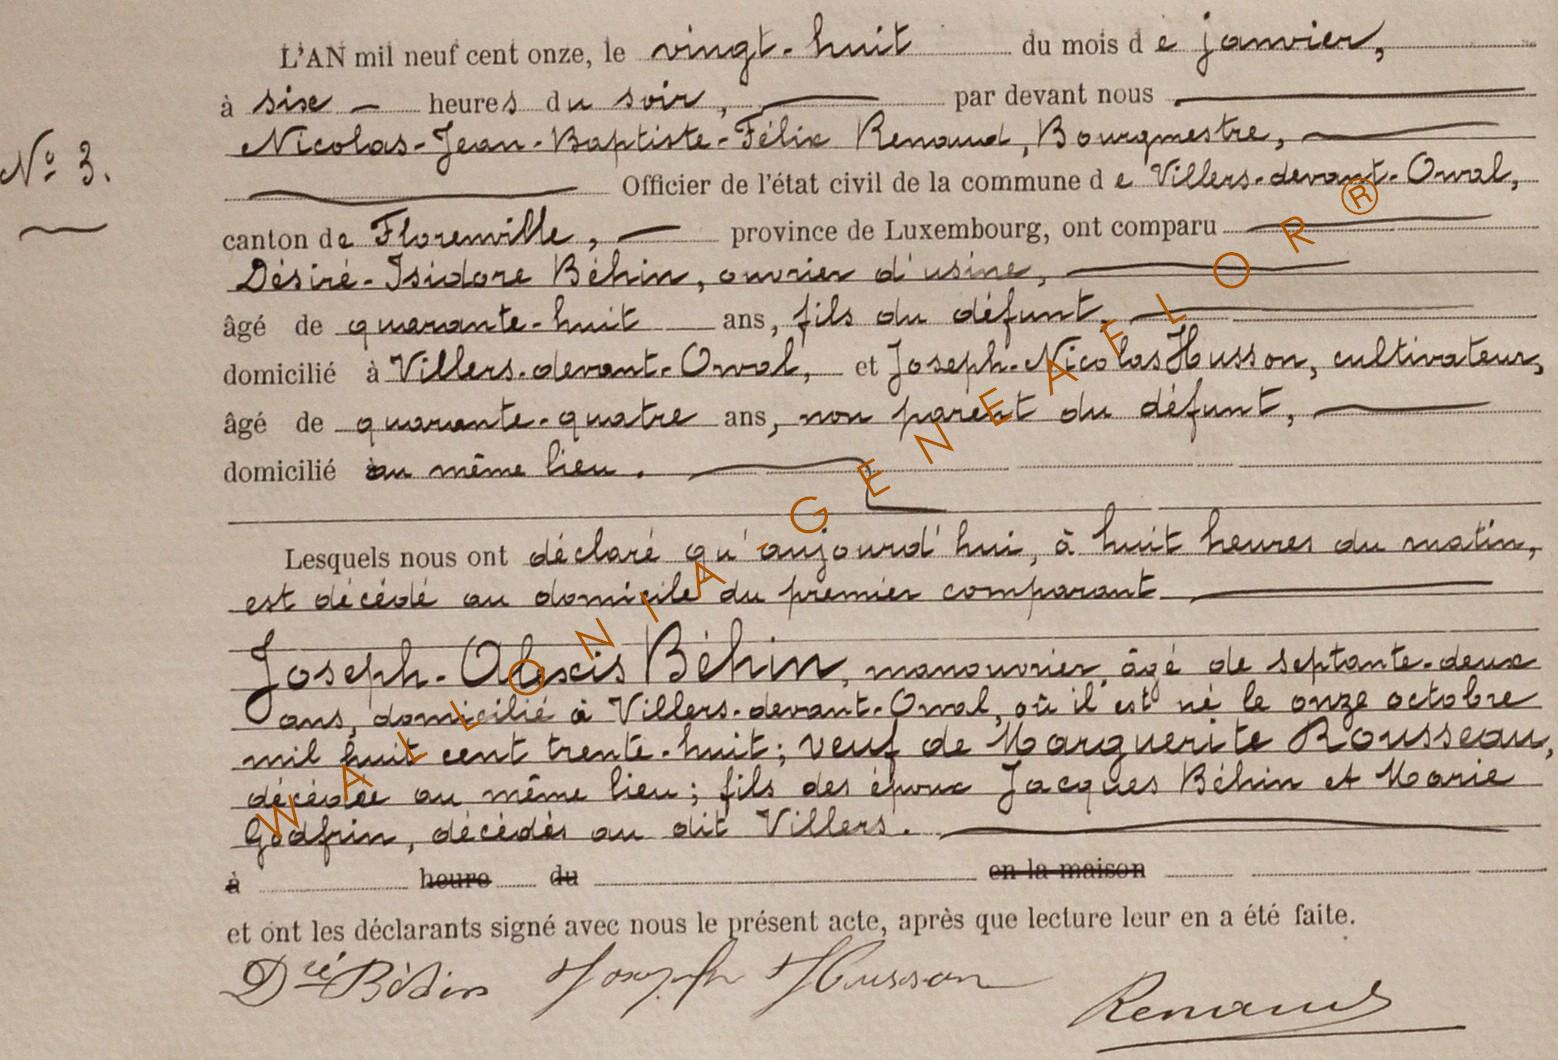 L'AN mil neuf cent onze, le vingt-huit du mois de janvier,
à six heures du soir, par devant nous
Nicolas-Jean-Baptiste-Félix Renaud, Bourgmestre,
N° 3.
Officier de l'état civil de la commune de Villers-devant-Orval,
canton de Florenville, province de Luxembourg, ont comparu
Désiré-Isidore Béhin, ouvrier d'usine,
âgé de quarante-huit ans, fils du défunt,
domicilié à Villers-devant-Orval, et Joseph-Nicolas Husson, cultivateur,
âgé de quarante-quatre ans, non parent du défunt,
domicilié au même lieu.
Lesquels nous ont déclaré qu'aujourd'hui, à huit heures du matin,
est décédé au domicile du premier comparant
Joseph-Alexis Béhin, manouvrier, âgé de septante-deux
ans, domicilié à Villers-devant-Orval, où il est né le onze octobre
mil huit cent trente-huit; veuf de Marguerite Rousseau,
décédée au même lieu; fils des époux Jacques Béhin et Marie
Godfrin, décédés au dit Villers.
à heure du en la maison
et ont les déclarants signé avec nous le présent acte, après que lecture leur en a été faite.
Dré Béhin Joseph Husson
Renaud
WALLONIA-GENEAFLOR®